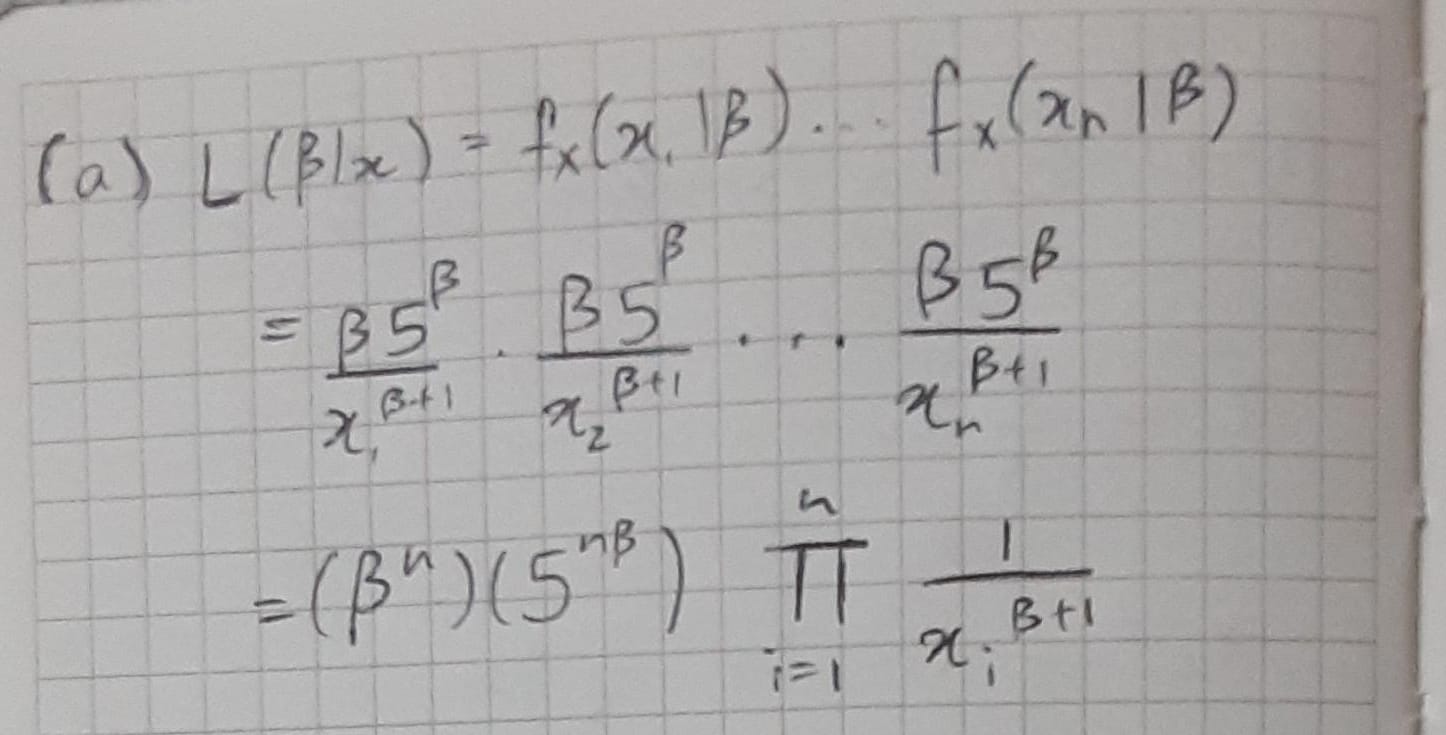 (a) L(β|x) = fₓ(x₁|β)... fₓ(xₙ|β)
= β5^β / x₁^(β+1) · β5^β / x₂^(β+1) · ... β5^β / xₙ^(β+1)
= (βⁿ)(5^(nβ)) ∏_(i=1)^n 1 / xᵢ^(β+1)